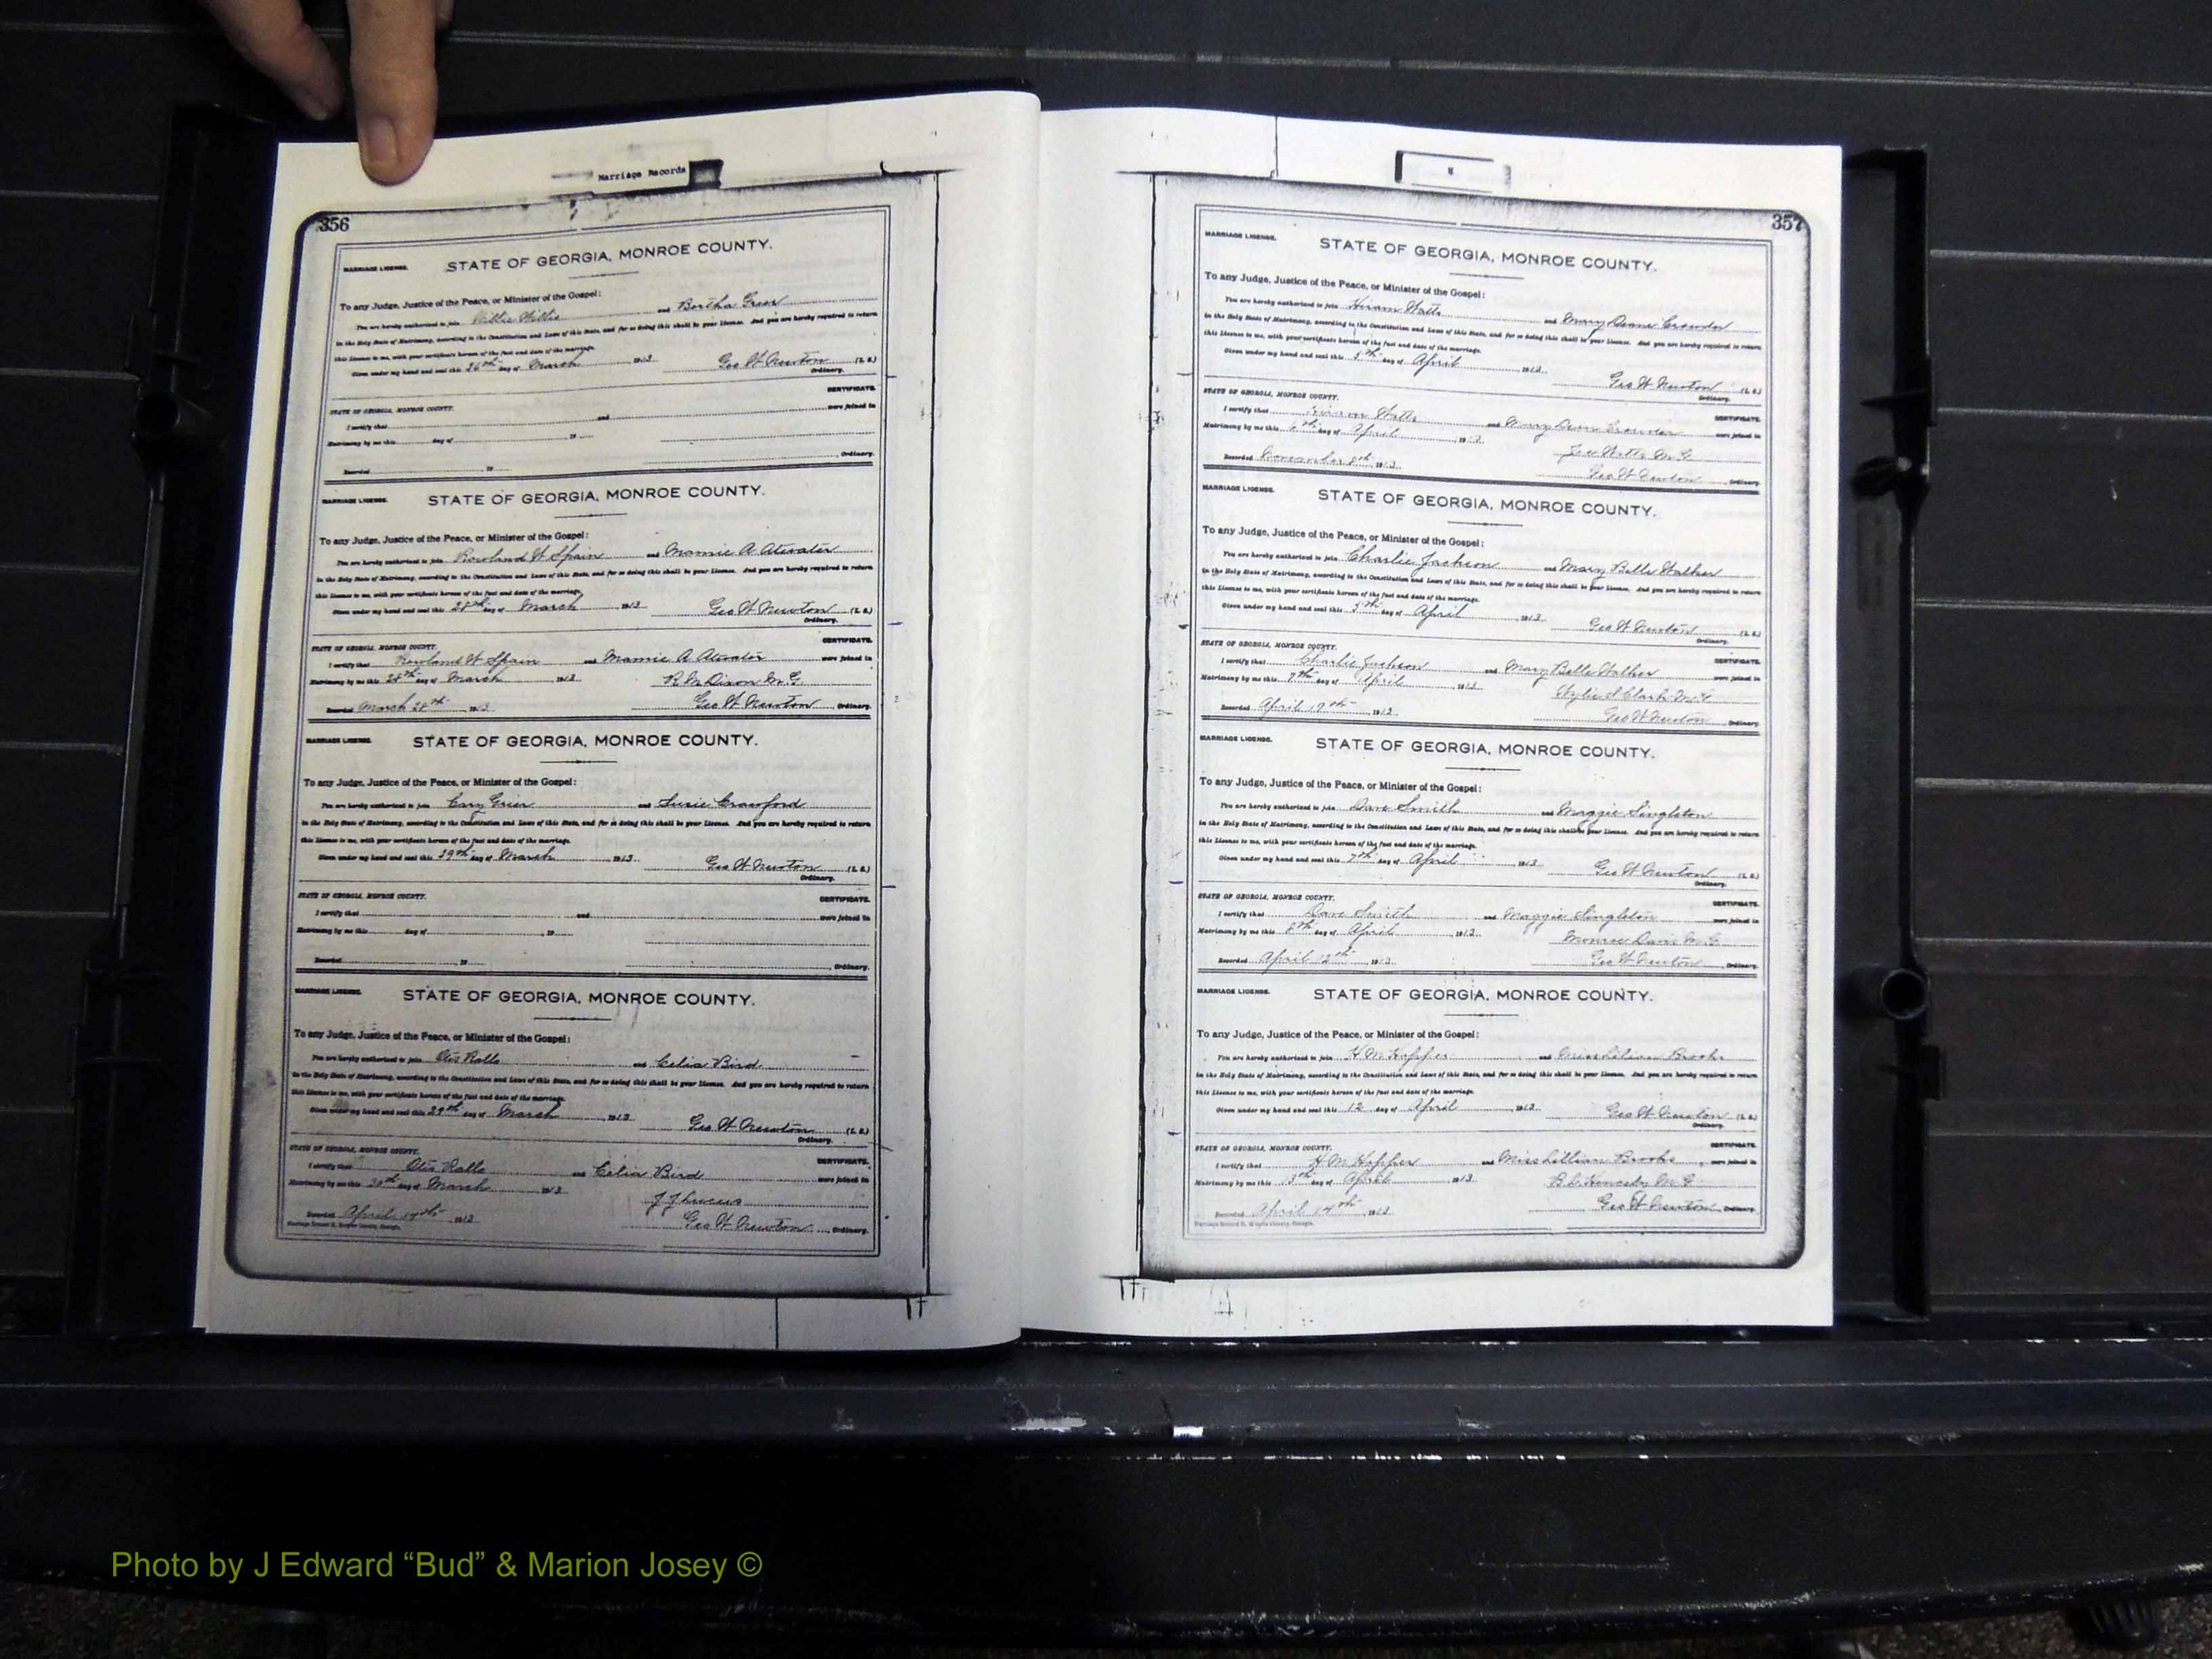 Marriage Records
356
MARRIAGE LICENSE. STATE OF GEORGIA, MONROE COUNTY.
To any Judge, Justice of the Peace, or Minister of the Gospel:
You are hereby authorized to join Willie Willis and Bertha Grier
in the Holy State of Matrimony, according to the Constitution and Laws of this State, and for so doing this shall be your License. And you are hereby required to return
this License to me, with your certificate hereon of the fact and date of the marriage.
Given under my hand and seal this 26th day of March, 1913 Geo W Newton (L. S.)
Ordinary.
CERTIFICATE.
STATE OF GEORGIA, MONROE COUNTY.
I certify that and were joined in
Matrimony by me this day of 19
Recorded 19 Ordinary.
MARRIAGE LICENSE. STATE OF GEORGIA, MONROE COUNTY.
To any Judge, Justice of the Peace, or Minister of the Gospel:
You are hereby authorized to join Rowland W Spain and Mamie A Atwater
in the Holy State of Matrimony, according to the Constitution and Laws of this State, and for so doing this shall be your License. And you are hereby required to return
this License to me, with your certificate hereon of the fact and date of the marriage.
Given under my hand and seal this 28th day of March, 1913 Geo W Newton (L. S.)
Ordinary.
CERTIFICATE.
STATE OF GEORGIA, MONROE COUNTY.
I certify that Rowland W Spain and Mamie A Atwater were joined in
Matrimony by me this 28th day of March 1913 R M Dixon M.G.
Recorded March 28th 1913 Geo W Newton, Ordinary.
MARRIAGE LICENSE. STATE OF GEORGIA, MONROE COUNTY.
To any Judge, Justice of the Peace, or Minister of the Gospel:
You are hereby authorized to join Cary Grier and Susie Crawford
in the Holy State of Matrimony, according to the Constitution and Laws of this State, and for so doing this shall be your License. And you are hereby required to return
this License to me, with your certificate hereon of the fact and date of the marriage.
Given under my hand and seal this 29th day of March, 1913 Geo W Newton (L. S.)
Ordinary.
CERTIFICATE.
STATE OF GEORGIA, MONROE COUNTY.
I certify that and were joined in
Matrimony by me this day of 19
Recorded 19 Ordinary.
MARRIAGE LICENSE. STATE OF GEORGIA, MONROE COUNTY.
To any Judge, Justice of the Peace, or Minister of the Gospel:
You are hereby authorized to join Otis Ralls and Celia Bird
in the Holy State of Matrimony, according to the Constitution and Laws of this State, and for so doing this shall be your License. And you are hereby required to return
this License to me, with your certificate hereon of the fact and date of the marriage.
Given under my hand and seal this 29th day of March, 1913 Geo W Newton (L. S.)
Ordinary.
CERTIFICATE.
STATE OF GEORGIA, MONROE COUNTY.
I certify that Otis Ralls and Celia Bird were joined in
Matrimony by me this 30th day of March 1913 J J Lucus
Recorded April 19th 1913 Geo W Newton, Ordinary.
357
MARRIAGE LICENSE. STATE OF GEORGIA, MONROE COUNTY.
To any Judge, Justice of the Peace, or Minister of the Gospel:
You are hereby authorized to join Hiram Watts and Mary Deane Crowder
in the Holy State of Matrimony, according to the Constitution and Laws of this State, and for so doing this shall be your License. And you are hereby required to return
this License to me, with your certificate hereon of the fact and date of the marriage.
Given under my hand and seal this 5th day of April, 1913
Geo W Newton (L. S.)
Ordinary.
STATE OF GEORGIA, MONROE COUNTY. CERTIFICATE.
I certify that Watts and Mary Dean Crowder were joined in
Matrimony by me this 6th day of April 1913 Watts M.G.
Recorded November 8th 1913 Geo W Newton, Ordinary.
MARRIAGE LICENSE. STATE OF GEORGIA, MONROE COUNTY.
To any Judge, Justice of the Peace, or Minister of the Gospel:
You are hereby authorized to join Charlie Jackson and Mary Belle Walker
in the Holy State of Matrimony, according to the Constitution and Laws of this State, and for so doing this shall be your License. And you are hereby required to return
this License to me, with your certificate hereon of the fact and date of the marriage.
Given under my hand and seal this 5th day of April, 1913 Geo W Newton (L. S.)
Ordinary.
STATE OF GEORGIA, MONROE COUNTY. CERTIFICATE.
I certify that Charlie Jackson and Mary Belle Walker were joined in
Matrimony by me this 7th day of April 1913 Wylie S Clark M.G.
Recorded April 19th 1913 Geo W Newton, Ordinary.
MARRIAGE LICENSE. STATE OF GEORGIA, MONROE COUNTY.
To any Judge, Justice of the Peace, or Minister of the Gospel:
You are hereby authorized to join Dave Smith and Maggie Singleton
in the Holy State of Matrimony, according to the Constitution and Laws of this State, and for so doing this shall be your License. And you are hereby required to return
this License to me, with your certificate hereon of the fact and date of the marriage.
Given under my hand and seal this 7th day of April, 1913 Geo W Newton (L. S.)
Ordinary.
STATE OF GEORGIA, MONROE COUNTY. CERTIFICATE.
I certify that Dave Smith and Maggie Singleton were joined in
Matrimony by me this 8th day of April 1913 Monroe Davis M.G.
Recorded April 12th 1913 Geo W Newton, Ordinary.
MARRIAGE LICENSE. STATE OF GEORGIA, MONROE COUNTY.
To any Judge, Justice of the Peace, or Minister of the Gospel:
You are hereby authorized to join H M Hopper and Miss Lillian Brooks
in the Holy State of Matrimony, according to the Constitution and Laws of this State, and for so doing this shall be your License. And you are hereby required to return
this License to me, with your certificate hereon of the fact and date of the marriage.
Given under my hand and seal this 12 day of April, 1913 Geo W Newton (L. S.)
Ordinary.
STATE OF GEORGIA, MONROE COUNTY. CERTIFICATE.
I certify that H M Hopper and Miss Lillian Brooks, were joined in
Matrimony by me this 13th day of April 1913 M G
Recorded April 14th 1913 Geo W Newton, Ordinary.
Photo by J Edward “Bud” & Marion Josey ©